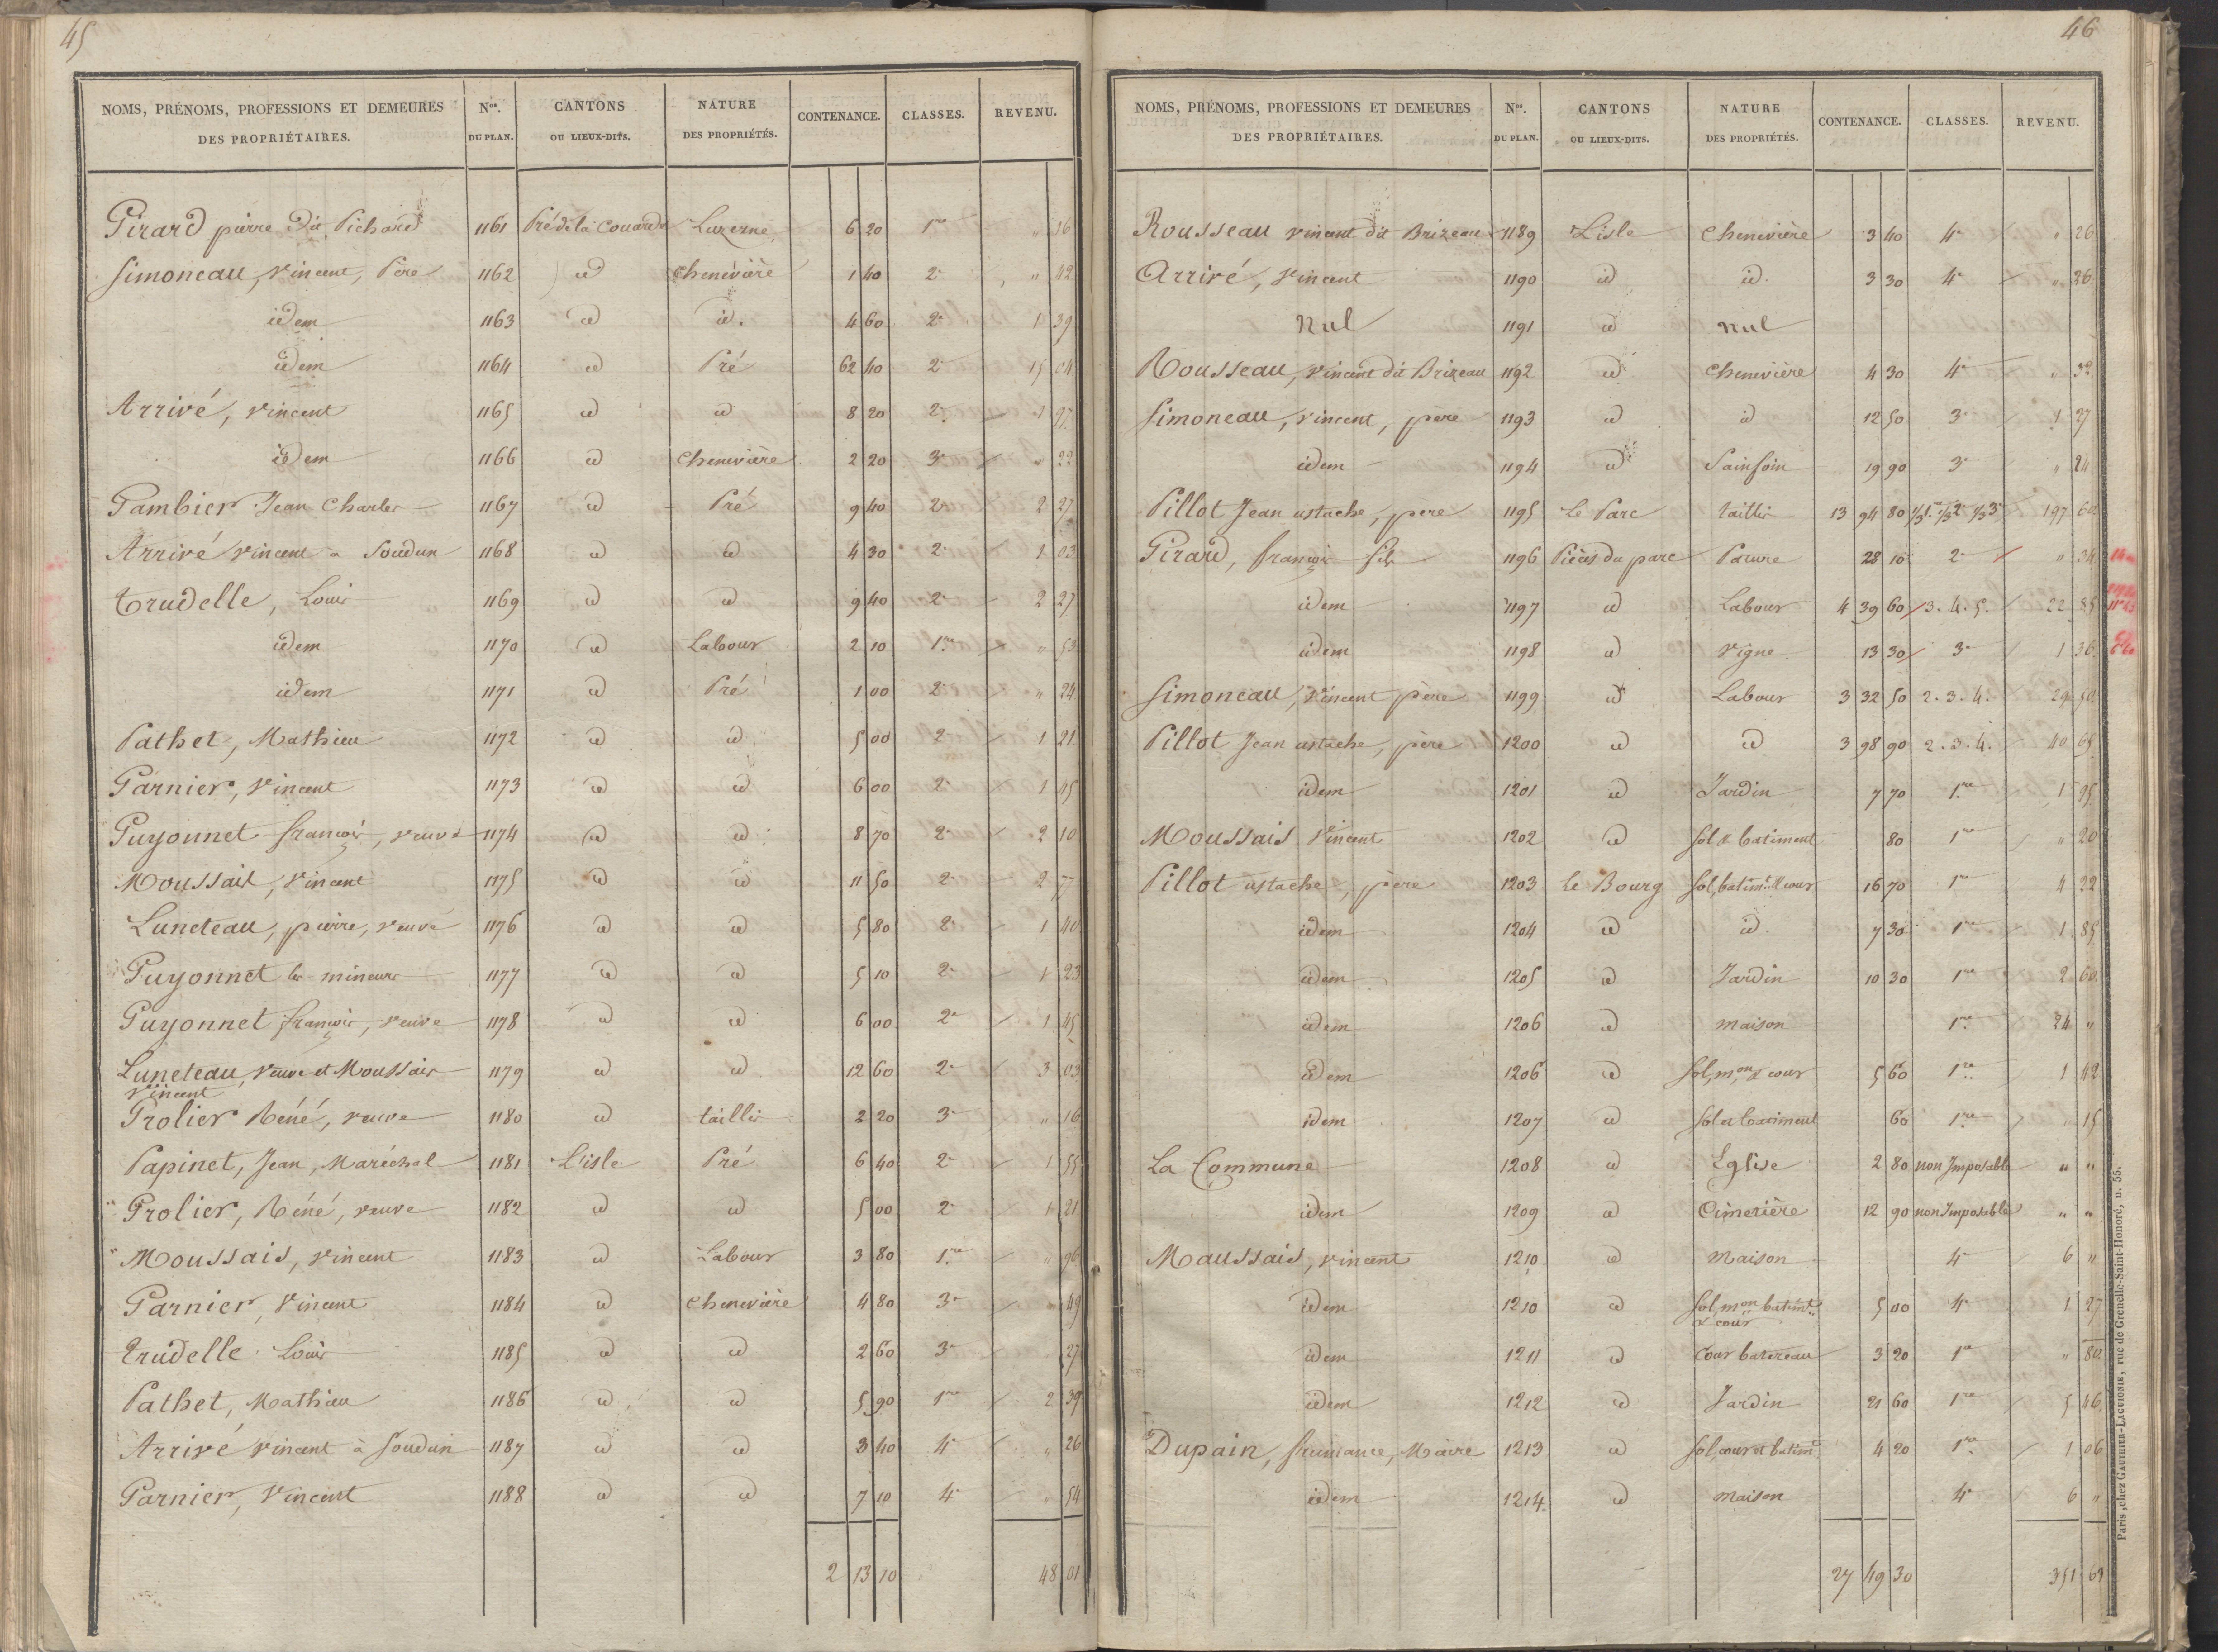 45
NOMS, PRÉNOMS, PROFESSIONS ET DEMEURES DES PROPRIÉTAIRES. Nos. DU PLAN. CANTONS OU LIEUX-DITS. NATURE DES PROPRIÉTÉS. CONTENANCE. CLASSES. REVENU.
Girard pierre dit Pichard 1161 Pré de la Couarde Luzerne 6 20 1re " 16
Simoneau, Vincent, Père 1162 id Chenevière 1 40 2e " 42
idem 1163 id id. 4 60 2e 1 39
idem 1164 id Pré 62 40 2e 15 04
Arrivé, Vincent 1165 id id 8 20 2e 1 97
idem 1166 id Chenevière 2 20 3e " 22
Gambier Jean Charles 1167 id Pré 9 40 2e 2 27
Arrivé Vincent a Soudun 1168 id id 4 30 2e 1 03
Trudelle, Louis 1169 id id 9 40 2e 2 27
idem 1170 id Labour 2 10 1re " 53
idem 1171 id Pré 1 00 2e " 24
Pathet, Mathieu 1172 id id 5 00 2 1 21
Garnier, Vincent 1173 id id 6 00 2e 1 45
Guyonnet françois, veuve 1174 id id 8 70 2e 2 10
Moussais, Vincent 1175 id id 11 50 2e 2 77
Luneteau, pierre, veuve 1176 id id 5 80 2e 1 40
Guyonnet les mineurs 1177 id id 5 10 2e 1 23
Guyonnet françois, veuve 1178 id id 6 00 2e 1 45
Luneteau, veuve et Moussais 1179 id id 12 60 2e 3 03
Vincent
Grolier Réné, veuve 1180 id taillis 2 20 3e " 16
Papinet, Jean, Maréchal 1181 L'isle Pré 6 40 2e 1 55
Grolier, Réné, veuve 1182 id id 5 00 2e 1 21
Moussais, Vincent 1183 id Labour 3 80 1re " 96
Garnier, Vincent 1184 id Chenevière 4 80 3e " 49
Trudelle Louis 1185 id id 2 60 3e 27
Pathet, Mathieu 1186 id id 5 90 1re 2 39
Arrivé Vincent à Soudun 1187 id id 3 40 4e " 26
Garnier, Vincent 1188 id id 7 10 4e 54
2 13 10 48 01
46
NOMS, PRÉNOMS, PROFESSIONS ET DEMEURES DES PROPRIÉTAIRES. Nos. DU PLAN. CANTONS OU LIEUX-DITS. NATURE DES PROPRIÉTÉS. CONTENANCE. CLASSES. REVENU.
Rousseau vincent dit Brizeau 1189 L'isle Chenevière 3 40 4e " 26
Arrivé, Vincent 1190 id id. 3 30 4e " 26
Nul 1191 id nul
Rousseau, Vincent dit Brizeau 1192 id Chenevière 4 30 4e " 32
Simoneau, Vincent, père 1193 id id 12 50 3e 1 27
idem 1194 id Sainfoin 19 90 3e " 24
Pillot Jean ustache, père 1195 Le Parc taillis 13 94 80 1/3 1re 1/3 2e 1/3 3e 197 60
Girard, françois fils 1196 Pièces du parc Pature 28 10 2e " 34
idem 1197 id Labour 4 39 60 3. 4. 5. 22 85
idem 1198 id Vigne 13 30 3e 1 36
Simoneau, Vincent père 1199 id Labour 3 32 50 2. 3. 4. 29 50
Pillot Jean ustache, père 1200 id id 3 98 90 2. 3. 4. 40 65
idem 1201 id Jardin 7 70 1re 1 95
Moussais Vincent 1202 id Sol de batiment 80 1re " 20
Pillot ustache, père 1203 Le Bourg Sol, batimt et cour 16 70 1re 4 22
idem 1204 id id. 7 30 1re 1 85
idem 1205 id Jardin 10 30 1re 2 60
idem 1206 id maison 1re 24 "
idem 1206 id Sol, mon & cour 5 60 1re 1 42
idem 1207 id Sol de batiment 60 1re " 15
La Commune 1208 id Eglise 2 80 non Imposable " "
idem 1209 id Cimetière 12 90 non Imposable " "
Maussais, vincent 1210 id Maison 4e 6 "
idem 1210 id Sol, mon batimts 5 00 4e 1 27
& cour
idem 1211 id Cour 3 20 1re " 80
idem 1212 id Jardin 21 60 1re 5 46
Dupain, Maire 1213 id Sol, cour et batimt 4 20 1re 1 06
idem 1214 id maison 4e 6 "
27 49 30 351 69
Paris, chez GAUTHIER-LAGUIONIE, rue de Grenelle-Saint-Honoré, n. 55.